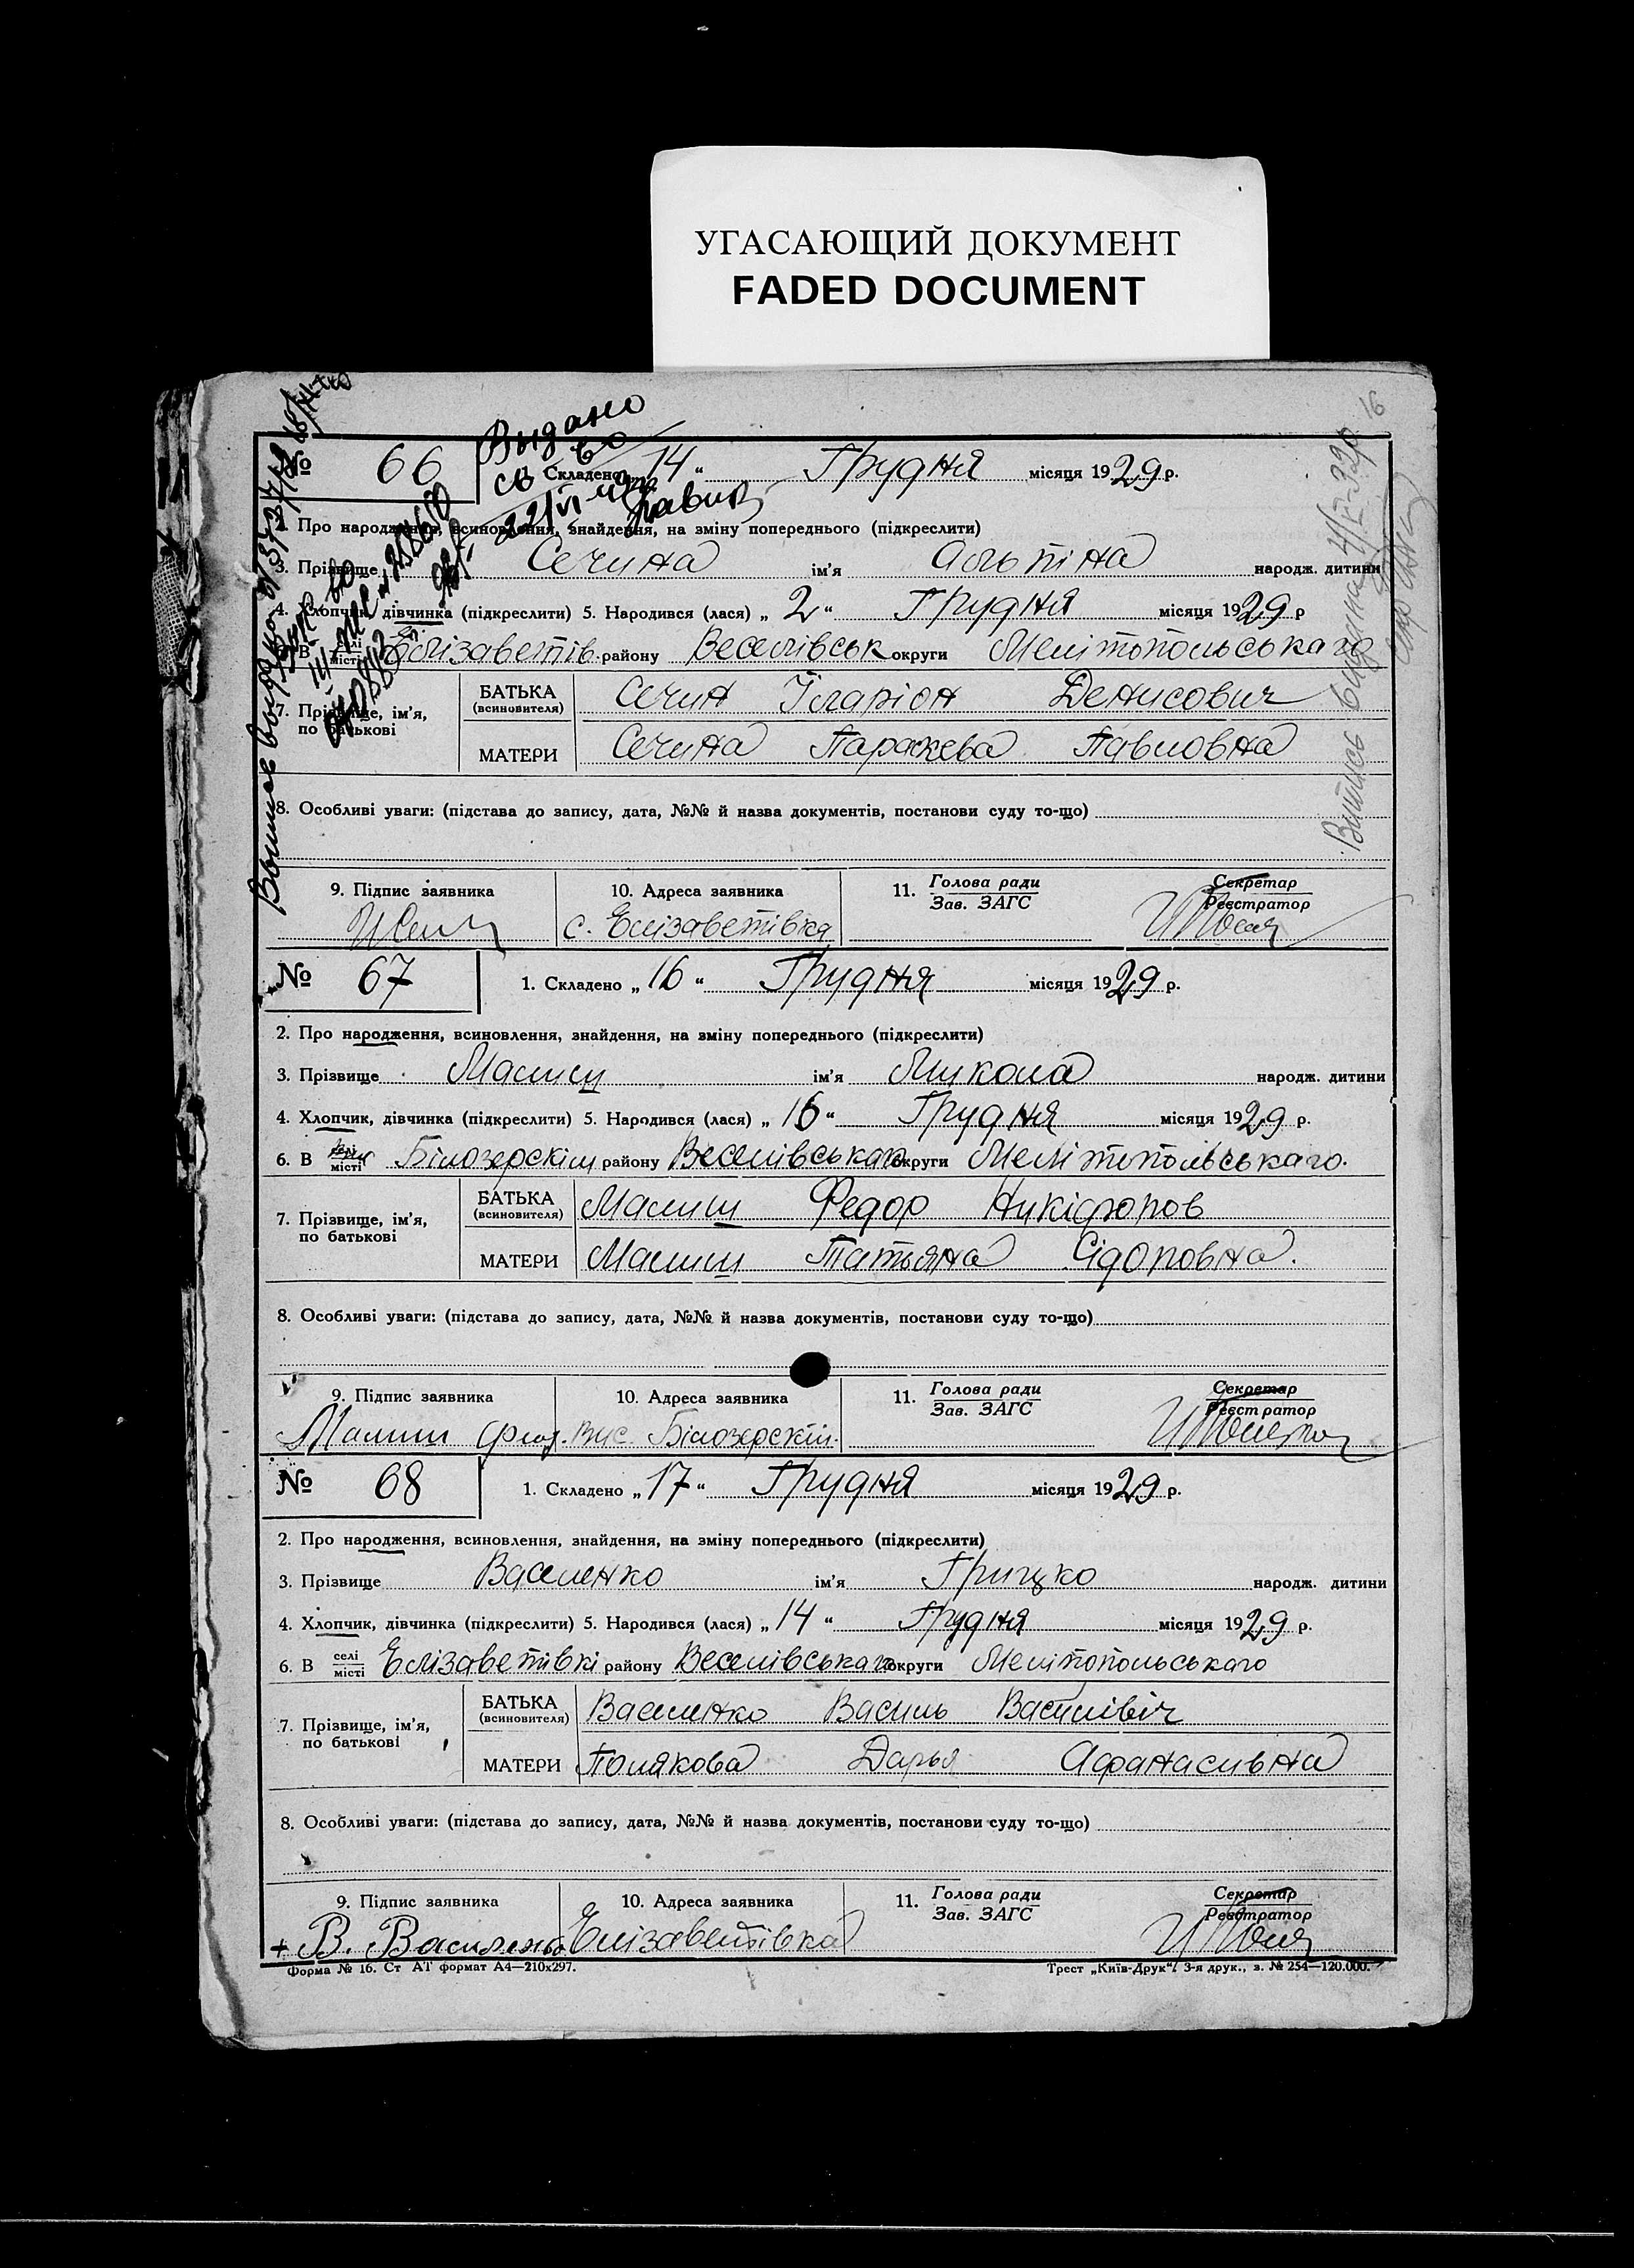 УГАСАЮЩИЙ ДОКУМЕНТ
FADED DOCUMENT
16
Выдано
св во
№ 66
1. Складено „14“ Грудня місяця 1929 р.
2. Про народження, всиновлення, знайдення, на зміну попереднього (підкреслити)
3. Прізвище Сечина ім’я Альпіна народж. дитини
4. Хлопчик, дівчинка (підкреслити) 5. Народився (лася) „2“ Грудня місяця 1929 р
6. В селі місті Єлізаветів. району Веселівськ округи Мелітопольськаго
7. Прізвище, ім’я, по батькові
БАТЬКА (всиновителя) Сечин Іларіон Денисович
МАТЕРИ Сечина Параскева Павловна
8. Особливі уваги: (підстава до запису, дата, №№ й назва документів, постанови суду то-що)
9. Підпис заявника 10. Адреса заявника 11. Голова ради Зав. ЗАГС Секретар Реєстратор
с. Єлізаветівка
№ 67 1. Складено „16“ Грудня місяця 1929 р.
2. Про народження, всиновлення, знайдення, на зміну попереднього (підкреслити)
3. Прізвище Малиш ім’я Микола народж. дитини
4. Хлопчик, дівчинка (підкреслити) 5. Народився (лася) „16“ Грудня місяця 1929 р.
6. В селі місті Білозерскім району Веселівськаго округи Мелітопольськаго.
7. Прізвище, ім’я, по батькові
БАТЬКА (всиновителя) Малиш Федор Никіфоров
МАТЕРИ Малиш Татьяна Сідоровна.
8. Особливі уваги: (підстава до запису, дата, №№ й назва документів, постанови суду то-що)
9. Підпис заявника 10. Адреса заявника 11. Голова ради Зав. ЗАГС Секретар Реєстратор
Малиш Білозерскій.
№ 68 1. Складено „17“ Грудня місяця 1929 р.
2. Про народження, всиновлення, знайдення, на зміну попереднього (підкреслити)
3. Прізвище Василенко ім’я Грицко народж. дитини
4. Хлопчик, дівчинка (підкреслити) 5. Народився (лася) „14“ Грудня місяця 1929 р.
6. В селі місті Єлізаветівкі району Веселівськаго округи Мелітопольського
7. Прізвище, ім’я, по батькові
БАТЬКА (всиновителя) Василенко Василь Василівіч
МАТЕРИ Полякова Дарья Афанасивна
8. Особливі уваги: (підстава до запису, дата, №№ й назва документів, постанови суду то-що)
9. Підпис заявника 10. Адреса заявника 11. Голова ради Зав. ЗАГС Секретар Реєстратор
+ В. Василенко Єлізаветівка
Форма № 16. Ст АТ формат А4—210х297. Трест „Київ-Друк“. 3-я друк., з. № 254—120.000.